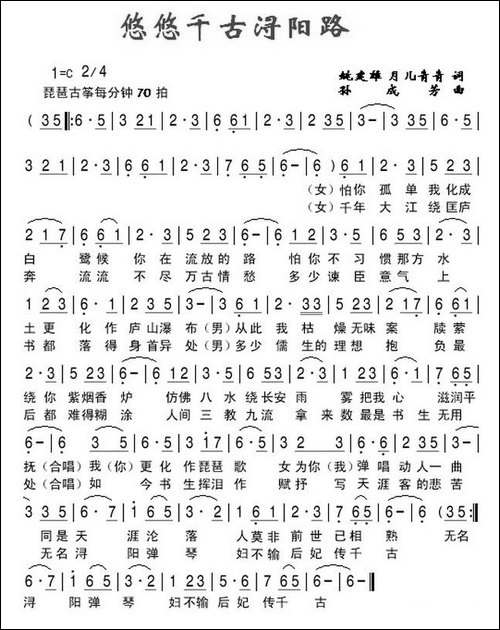 悠悠千古浔阳路
1=C 2/4
琵琶古筝每分钟 70 拍
姚建雄 月儿青青 词
孙 成 芳 曲
( 3 5 ‖: 6· 5 | 3 2 1 | 2· 3 | 6 6 1 | 2· 3 | 5 3 5 | 3 - | 3 3 5 | 6· 5 |
3 2 1 | 2· 3 | 6 6 1 | 2· 3 | 7 6 5 | 6 - | 6 - ) | 6 1 | 2· 3 | 1 2 3 |
(女) 怕你 孤 单 我化成
(女) 千年 大 江 绕匡庐
2 1 7 | 6 6 1 | 2· 3 | 5 2 3 5 | 6· 5 | 6 1 | 2· 3 | 1 2 3 |
白 鹭候 你在流放的路 怕你不习惯那方水
奔 流流 不尽万古情愁 多少谏臣意气上
1 2 3 | 2· 3 | 7 6 5 | 6· 1 | 2· 3 3 | 5 2 3 | 2 1 7 | 6 6 1 |
土更 化作庐山瀑布 (男) 从此我枯燥无味案牍萦
书都 落得身首异处 (男) 多少儒生的理想抱负最
2· 3 | 5 2 3 5 | 6· 5 | 3· 5 | 6 5 1 | 2· 3 | 1 2 3 | 7 6 5 |
绕你紫烟香炉 仿佛八水绕长安雨雾把我心滋润平
后都难得糊涂 人间三教九流拿来数最是书生无用
抚 (合唱) 我 (你) 更化作琵琶歌 女为你 (我) 弹唱动人一曲
处 (合唱) 如 今书生挥泪作 赋抒写天涯客的悲苦
同是天涯沦落 人莫非前世已相熟 无名
无名浔阳弹琴 妇不输后妃传千古
6· 7 | 1 6 5 | 3· 2 | 5 7 6 5 | 6 - | 6 - ‖
浔 阳弹琴 妇不输后妃传千 古